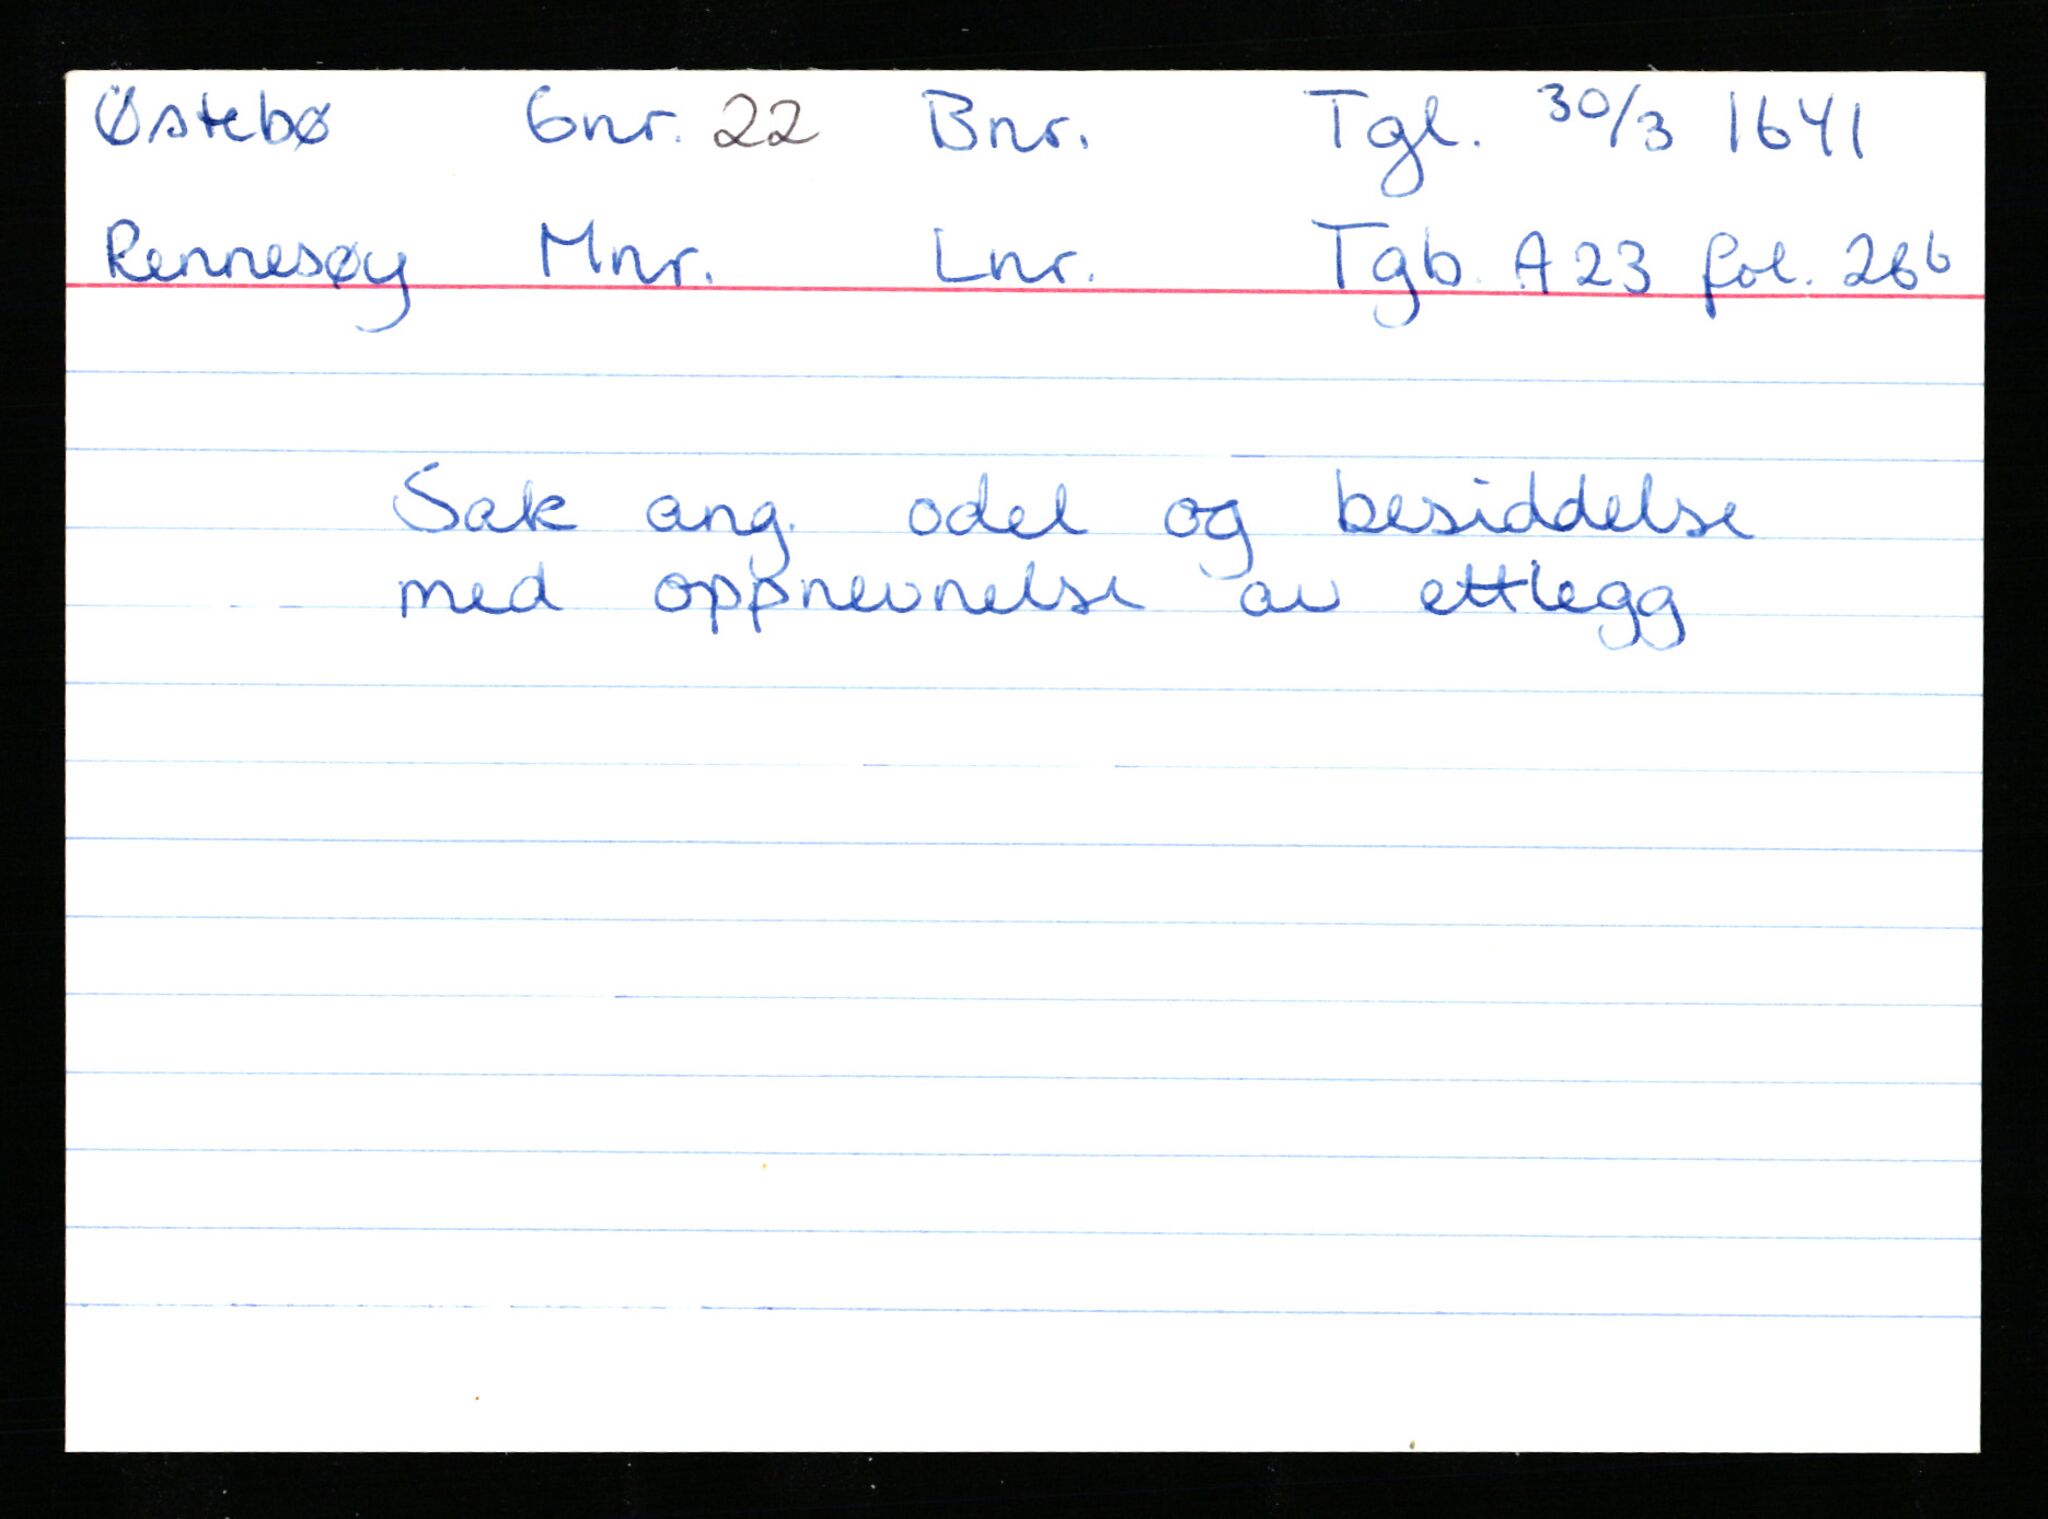 Østebø Gnr. 22 Bnr. Tgl. 30/3 1641
Rennesøy Mnr. Lnr. Tgb. A 23 fol. 26b
Sak ang. odel og besiddelse
med oppnevnelse av ettlegg